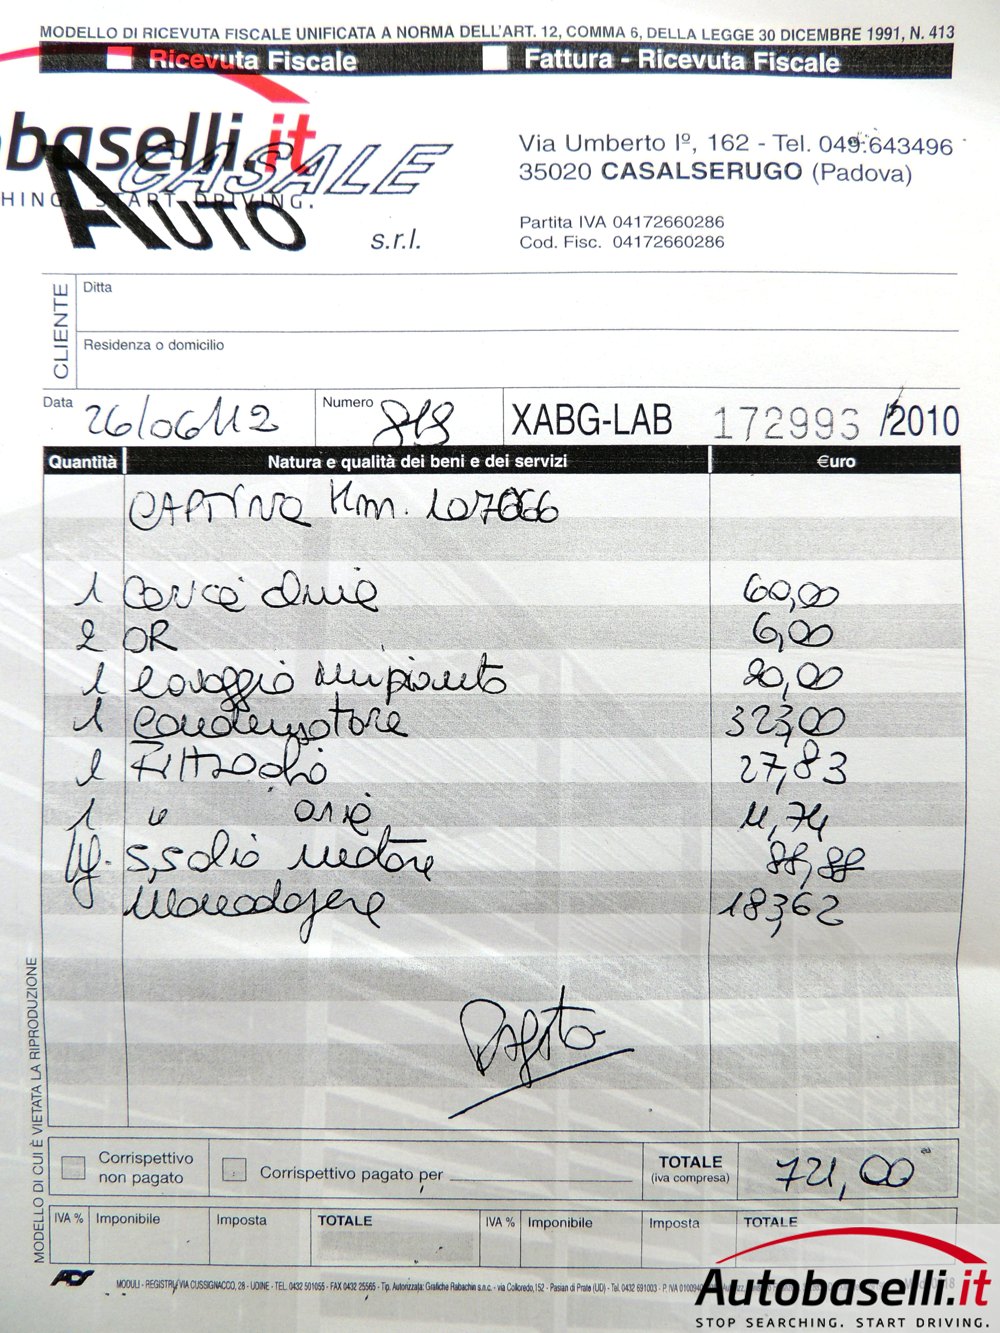 MODELLO DI RICEVUTA FISCALE UNIFICATA A NORMA DELL'ART. 12, COMMA 6, DELLA LEGGE 30 DICEMBRE 1991, N. 413
Ricevuta Fiscale Fattura - Ricevuta Fiscale
obaselli.it
CHING. START DRIVING.
CASALE
AUTO
s.r.l.
Via Umberto Iº, 162 - Tel. 049.643496
35020 CASALSERUGO (Padova)
Partita IVA 04172660286
Cod. Fisc. 04172660286
CLIENTE
Ditta
Residenza o domicilio
Data 26/06/12 Numero 818 XABG-LAB 172993 /2010
Quantità Natura e qualità dei beni e dei servizi €uro
CAPTIVA Km. 107066
1 Carica clima 60,00
2 OR 6,00
1 lavaggio impianto 20,00
1 Condensatore 323,00
1 Filtro olio 27,83
1 " aria
5,5 olio motore 88,88
Manodopera 183,62
Pagato
MODELLO DI CUI È VIETATA LA RIPRODUZIONE
Corrispettivo non pagato
Corrispettivo pagato per
TOTALE (iva compresa) 721,00
IVA % Imponibile Imposta TOTALE IVA % Imponibile Imposta TOTALE
ADS
MODULI - REGISTRI VIA CUSSIGNACCO, 28 - UDINE - TEL. 0432 501055 - FAX 0432 25565 - Tip. Autorizzata: Grafiche Rabachin s.n.c. - via Colloredo, 152 - Pasian di Prato (UD) - Tel. 0432 691003
Autobaselli.it
STOP SEARCHING. START DRIVING.